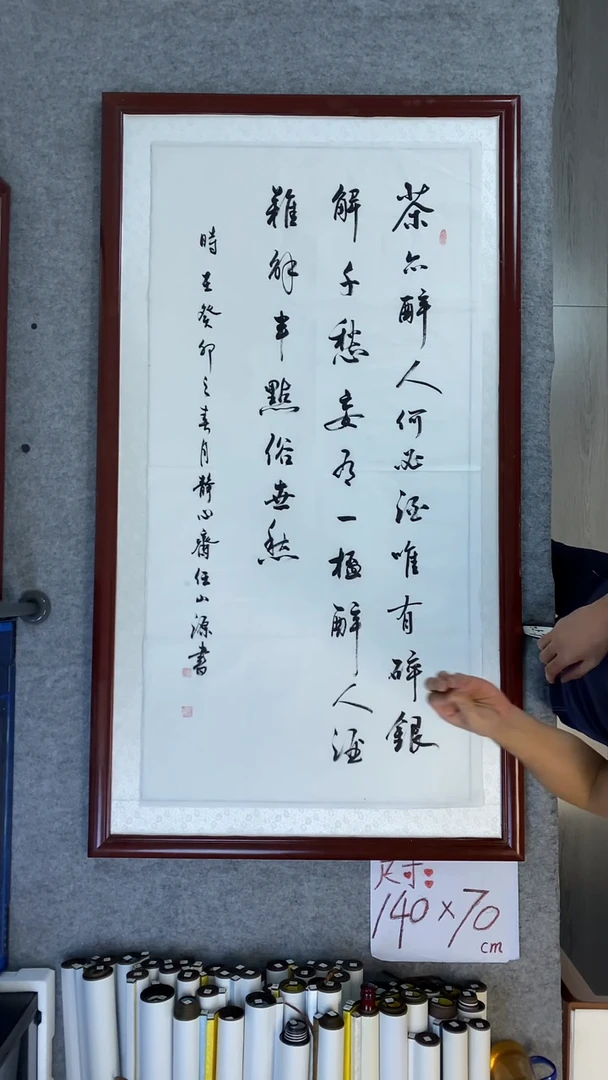 茶亦醉人何必酒唯有碎銀
解千愁一醉人酒
難解半點俗世愁
時在癸卯之春月靜心齋任山源書
尺寸:
140×70
cm